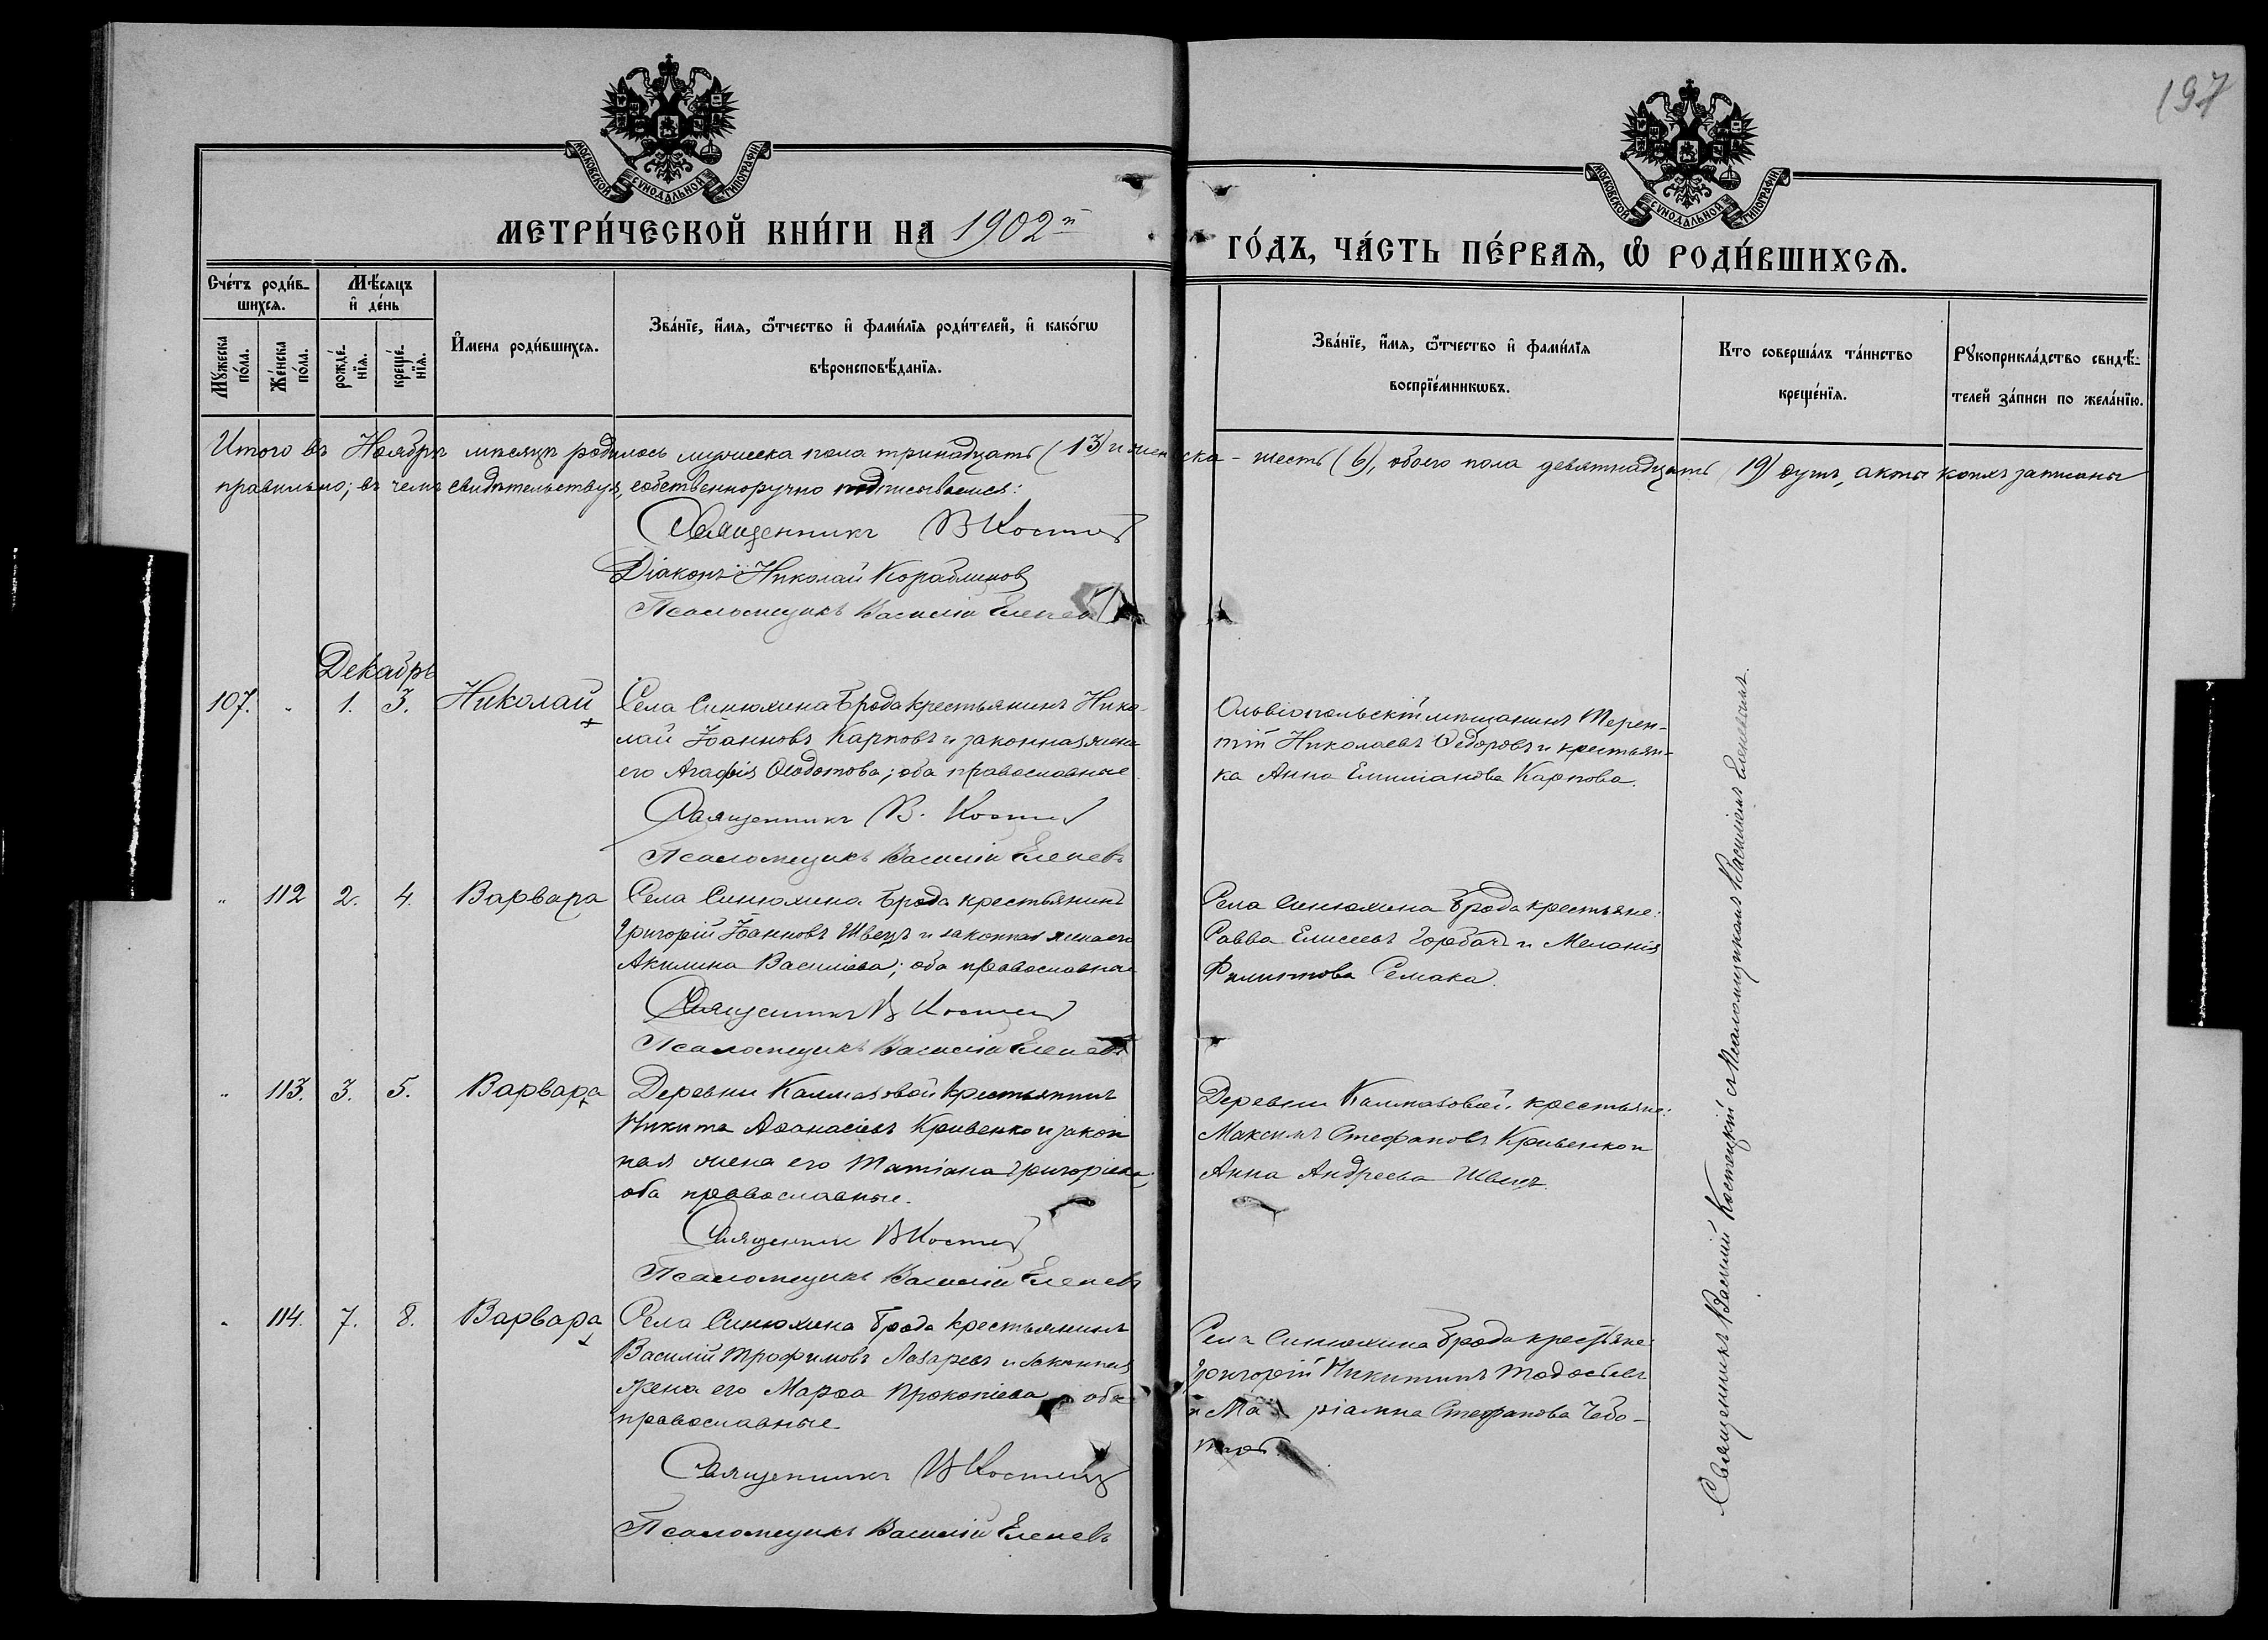 197
МОСКОВСКОЙ СѴНОДАЛЬНОЙ ТИПОГРАФІИ
МОСКОВСКОЙ СѴНОДАЛЬНОЙ ТИПОГРАФІИ
МЕТРИ́ЧЕСКОЙ КНИ́ГИ НА 1902й
ГО́ДЪ, ЧА́СТЬ ПЕ́РВАѦ, Ѡ РОДИ́ВШИХСѦ.
Сче́тъ роди́в-
шихсѧ.
Мѣ́сѧцъ
и҆ де́нь
Мꙋ́жеска
по́ла.
Же́нска
по́ла.
рожде́-
нїѧ.
креще́-
нїѧ.
И҆мена роди́вшихсѧ.
Зва́нїе, и҆́мѧ, ѻ҆́тчество и҆ фами́лїѧ роди́телей, и҆ како́гѡ
вѣроисповѣ́данїѧ.
Зва́нїе, и҆́мѧ, ѻ҆́тчество и҆ фами́лїѧ
воспрїе́мникѡвъ.
Кто совершáлъ та́инство
креще́нїѧ.
Рꙋкоприкла́дство свидѣ́-
телей за́писи по жела́нїю.
Итого въ Ноябрѣ мѣсяцѣ родилось мужеска пола тринадцать (13) и женска - шесть (6), обоего пола девятнадцать (19) душъ, акты коихъ записаны
правильно; въ чемъ свидѣтельствуя, собственноручно подписываемся:
Священникъ В Костец
Діаконъ Николай Кораблинов
Псаломщикъ Василій Еленев
Декабрь
107. " 1. 3. Николай Села Синюхина Брода крестьянинъ Нико-
лай Іоанновъ Карповъ и законная жена
его Агафія Ѳеодотова; оба православные
Священникъ В. Костец
Псаломщикъ Василій Еленевъ
Ольвіопольскій мѣщанинъ Терен-
тій Николаевъ Ѳедоровъ и крестьян-
ка Анна Емиліанова Карпова.
" 112 2. 4. Варвара Села Синюхина Брода крестьянинъ
Григорій Іоанновъ Швецъ и законная жена его
Акилина Василіева; оба православные
Священникъ В Костец
Псаломщикъ Василій Еленевъ
Села Синюхина Брода крестьяне:
Савва Елисеевъ Горбачъ и Меланія
Филиппова Семака.
" 113. 3. 5. Варвара Деревни Калмазовой крестьянинъ
Никита Аѳанасіевъ Кривенко и закон
ная жена его Татіана Григоріева;
оба православные.
Священник В Костец
Псаломщикъ Василій Еленевъ
Деревни Калмазовой крестьяне:
Максимъ Стефановъ Кривенко и
Анна Андреева Швецъ.
" 114. 7. 8. Варвара Села Синюхина Брода крестьянинъ
Василій Трофимовъ Лазаревъ и законная
жена его Марѳа Прокопіева оба
православные
Священникъ В Костец
Псаломщикъ Василій Еленевъ
Села Синюхина Брода крестьяне:
Григорій Никитинъ
и Ма ріанна Стефанова Чебо-
Священникъ Василій Костецкій съ Псаломщикомъ Василіемъ Еленевымъ.